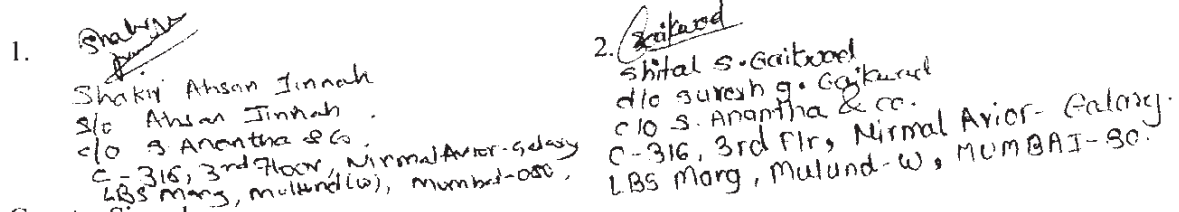 1.
Shakir
Shakir Ahsan Jinnah
S/o Ahsan Jinnah.
c/o S Anantha & Co.
C-316, 3rd Floor, Nirmal Avior-Galaxy
LBS Marg, Mulund (W), Mumbai-080.
2. Gaikwad
Shital S. Gaikwad
d/o Suresh g. Gaikwad
c/o S. Anantha & co.
C-316, 3rd Flr, Nirmal Avior-Galaxy.
LBS Marg, Mulund-W, MUMBAI-80.